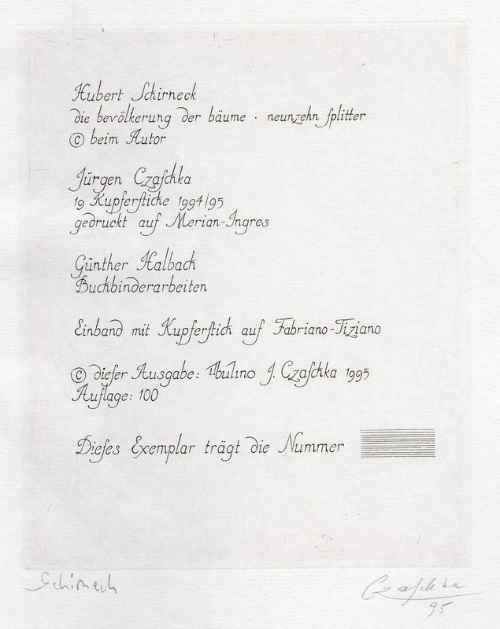 Hubert Schirneck
die bevölkerung der bäume · neunzehn ſplitter
© beim Autor
Jürgen Czaſchka
19 Kupferſtiche 1994/95
gedruckt auf Merian-Ingres
Günther Halbach
Buchbinderarbeiten
Einband mit Kupferſtich auf Fabriano-Tiziano
© dieſer Ausgabe: Ibulino J. Czaſchka 1995
Auflage: 100
Dieſes Exemplar trägt die Nummer
Schirneck
Czaſchka
95